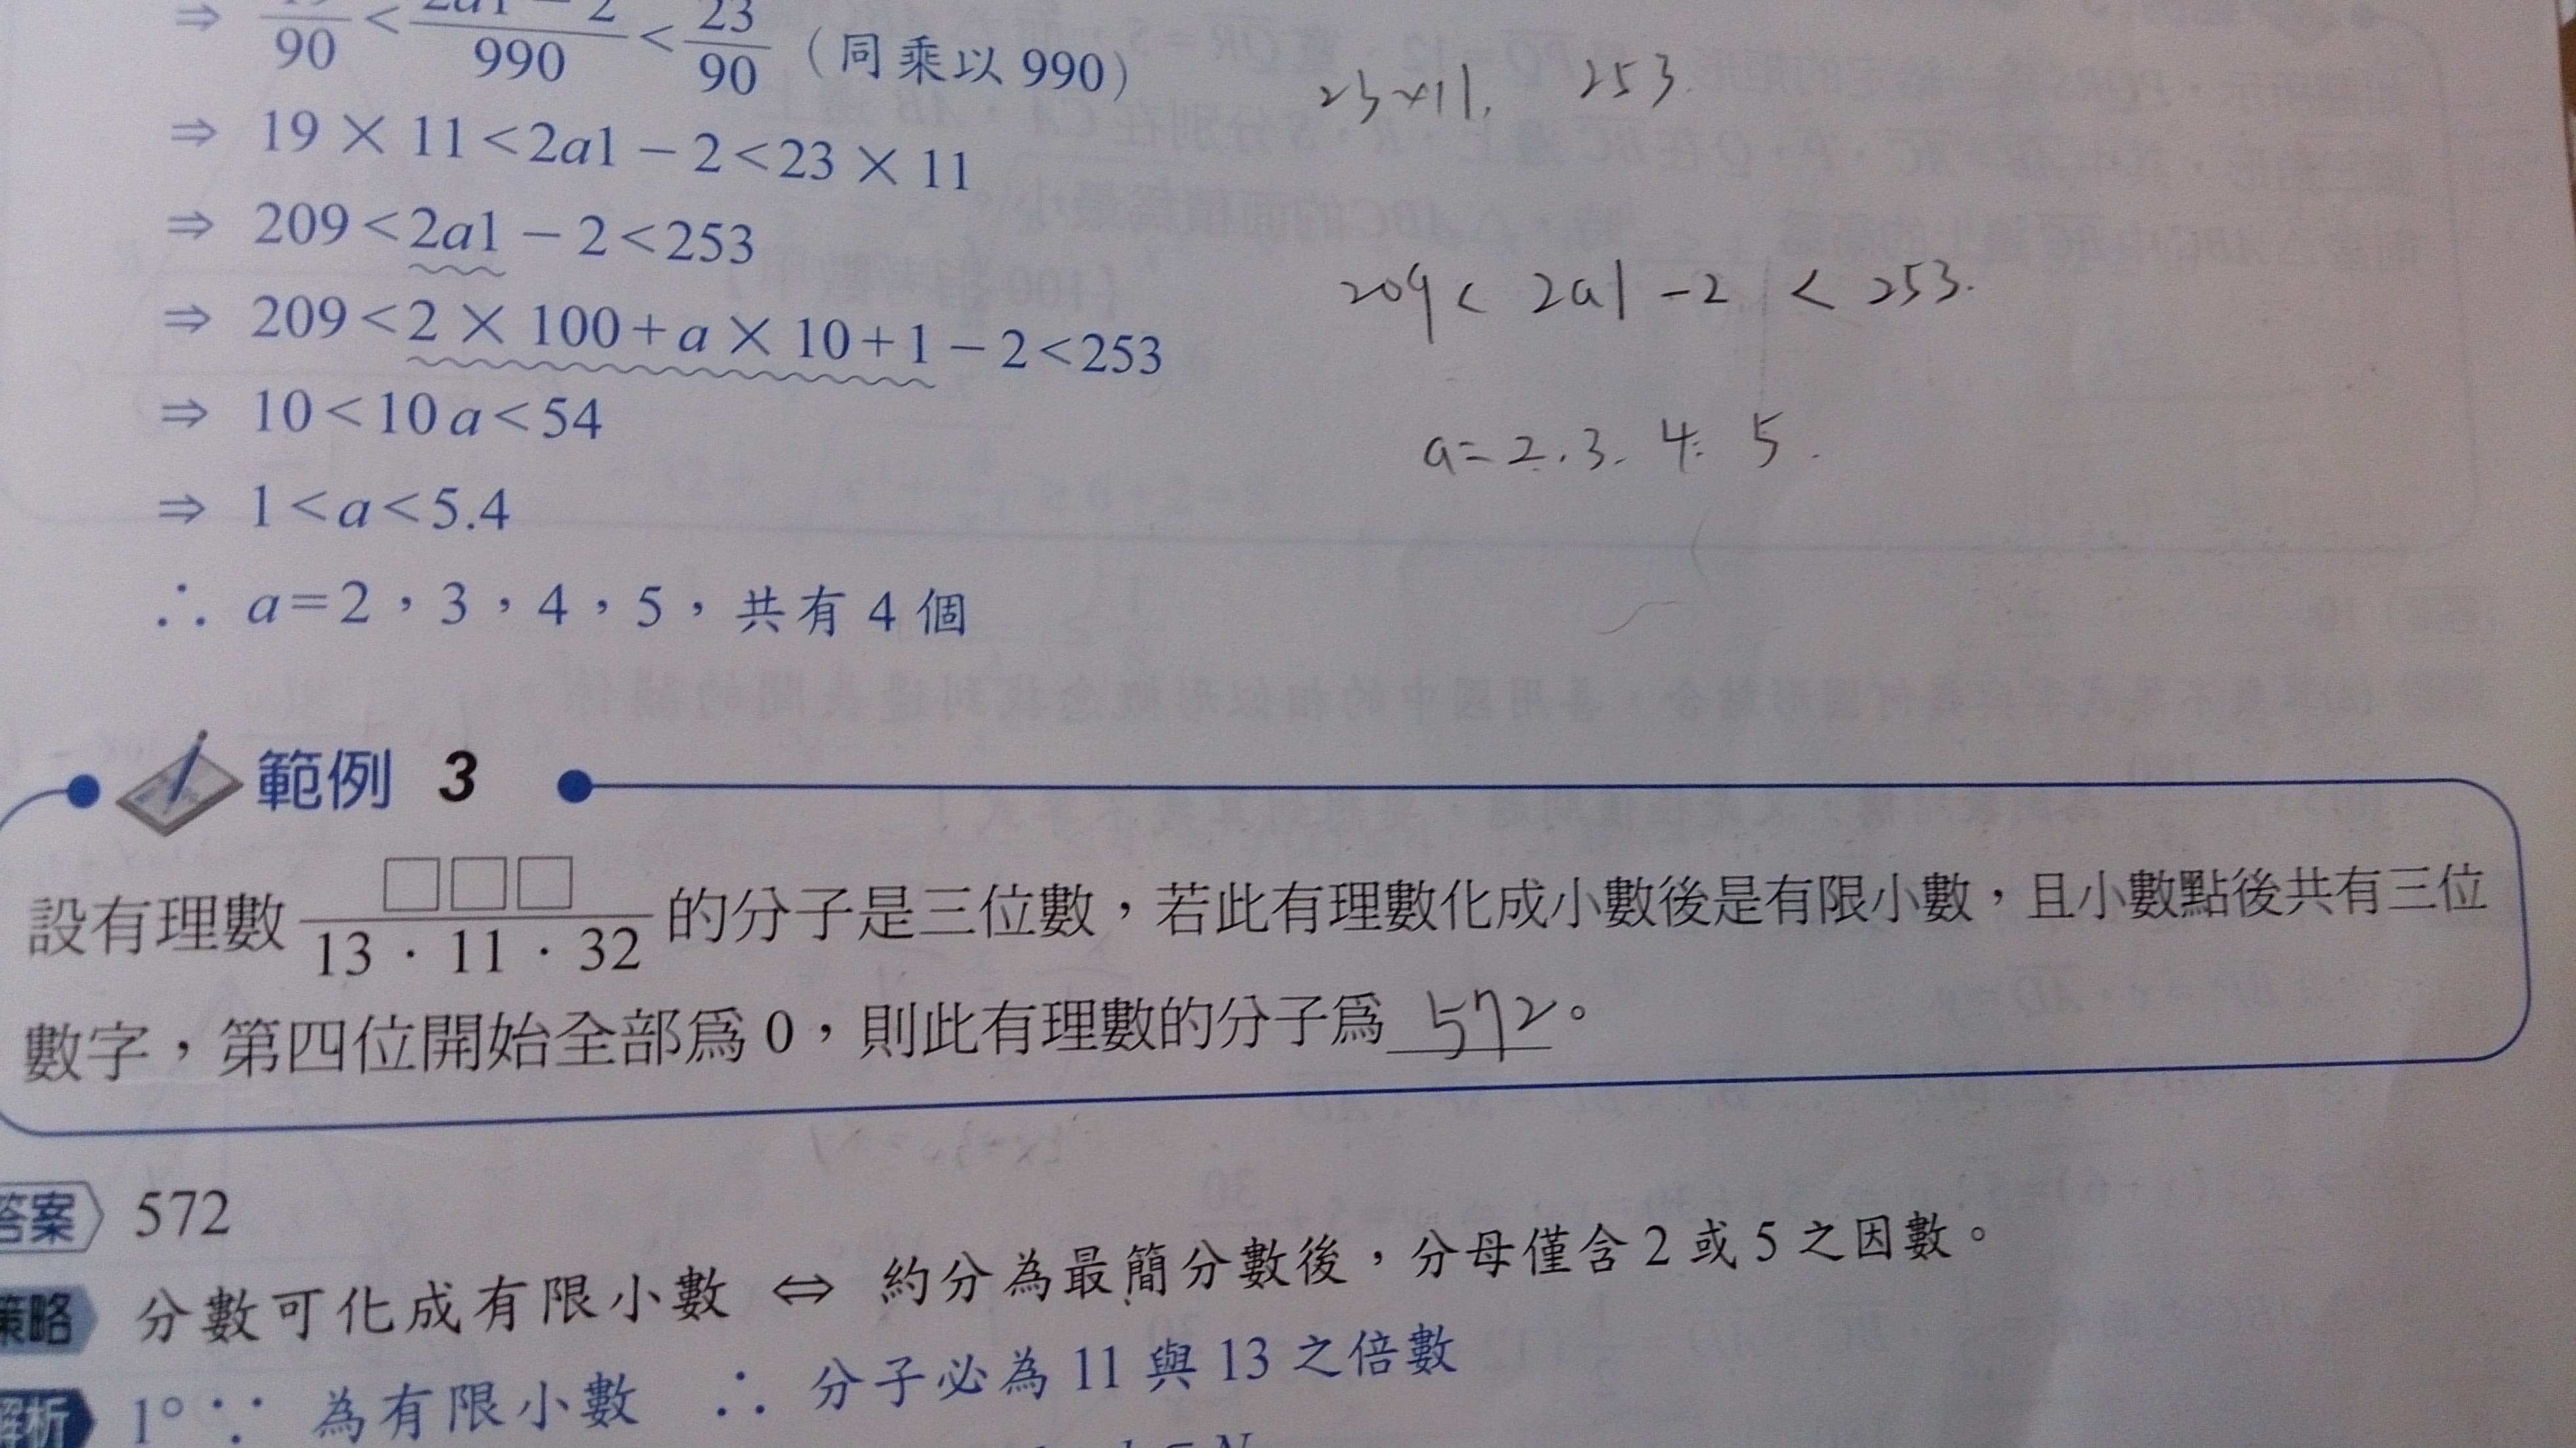 ⇒ 19/90 < (2a1 − 2)/990 < 23/90 (同乘以 990)
23×11. 253.
⇒ 19 × 11 < 2a1 − 2 < 23 × 11
⇒ 209 < 2a1 − 2 < 253
209 < 2a1 − 2 < 253.
⇒ 209 < 2 × 100 + a × 10 + 1 − 2 < 253
⇒ 10 < 10a < 54
a = 2. 3. 4. 5.
⇒ 1 < a < 5.4
∴ a = 2,3,4,5,共有 4 個
範例 3
設有理數 □□□/(13 · 11 · 32) 的分子是三位數,若此有理數化成小數後是有限小數,且小數點後共有三位
數字,第四位開始全部爲 0,則此有理數的分子爲 572。
答案 572
策略 分數可化成有限小數 ⇔ 約分為最簡分數後,分母僅含 2 或 5 之因數。
解析 1° ∵ 為有限小數 ∴ 分子必為 11 與 13 之倍數